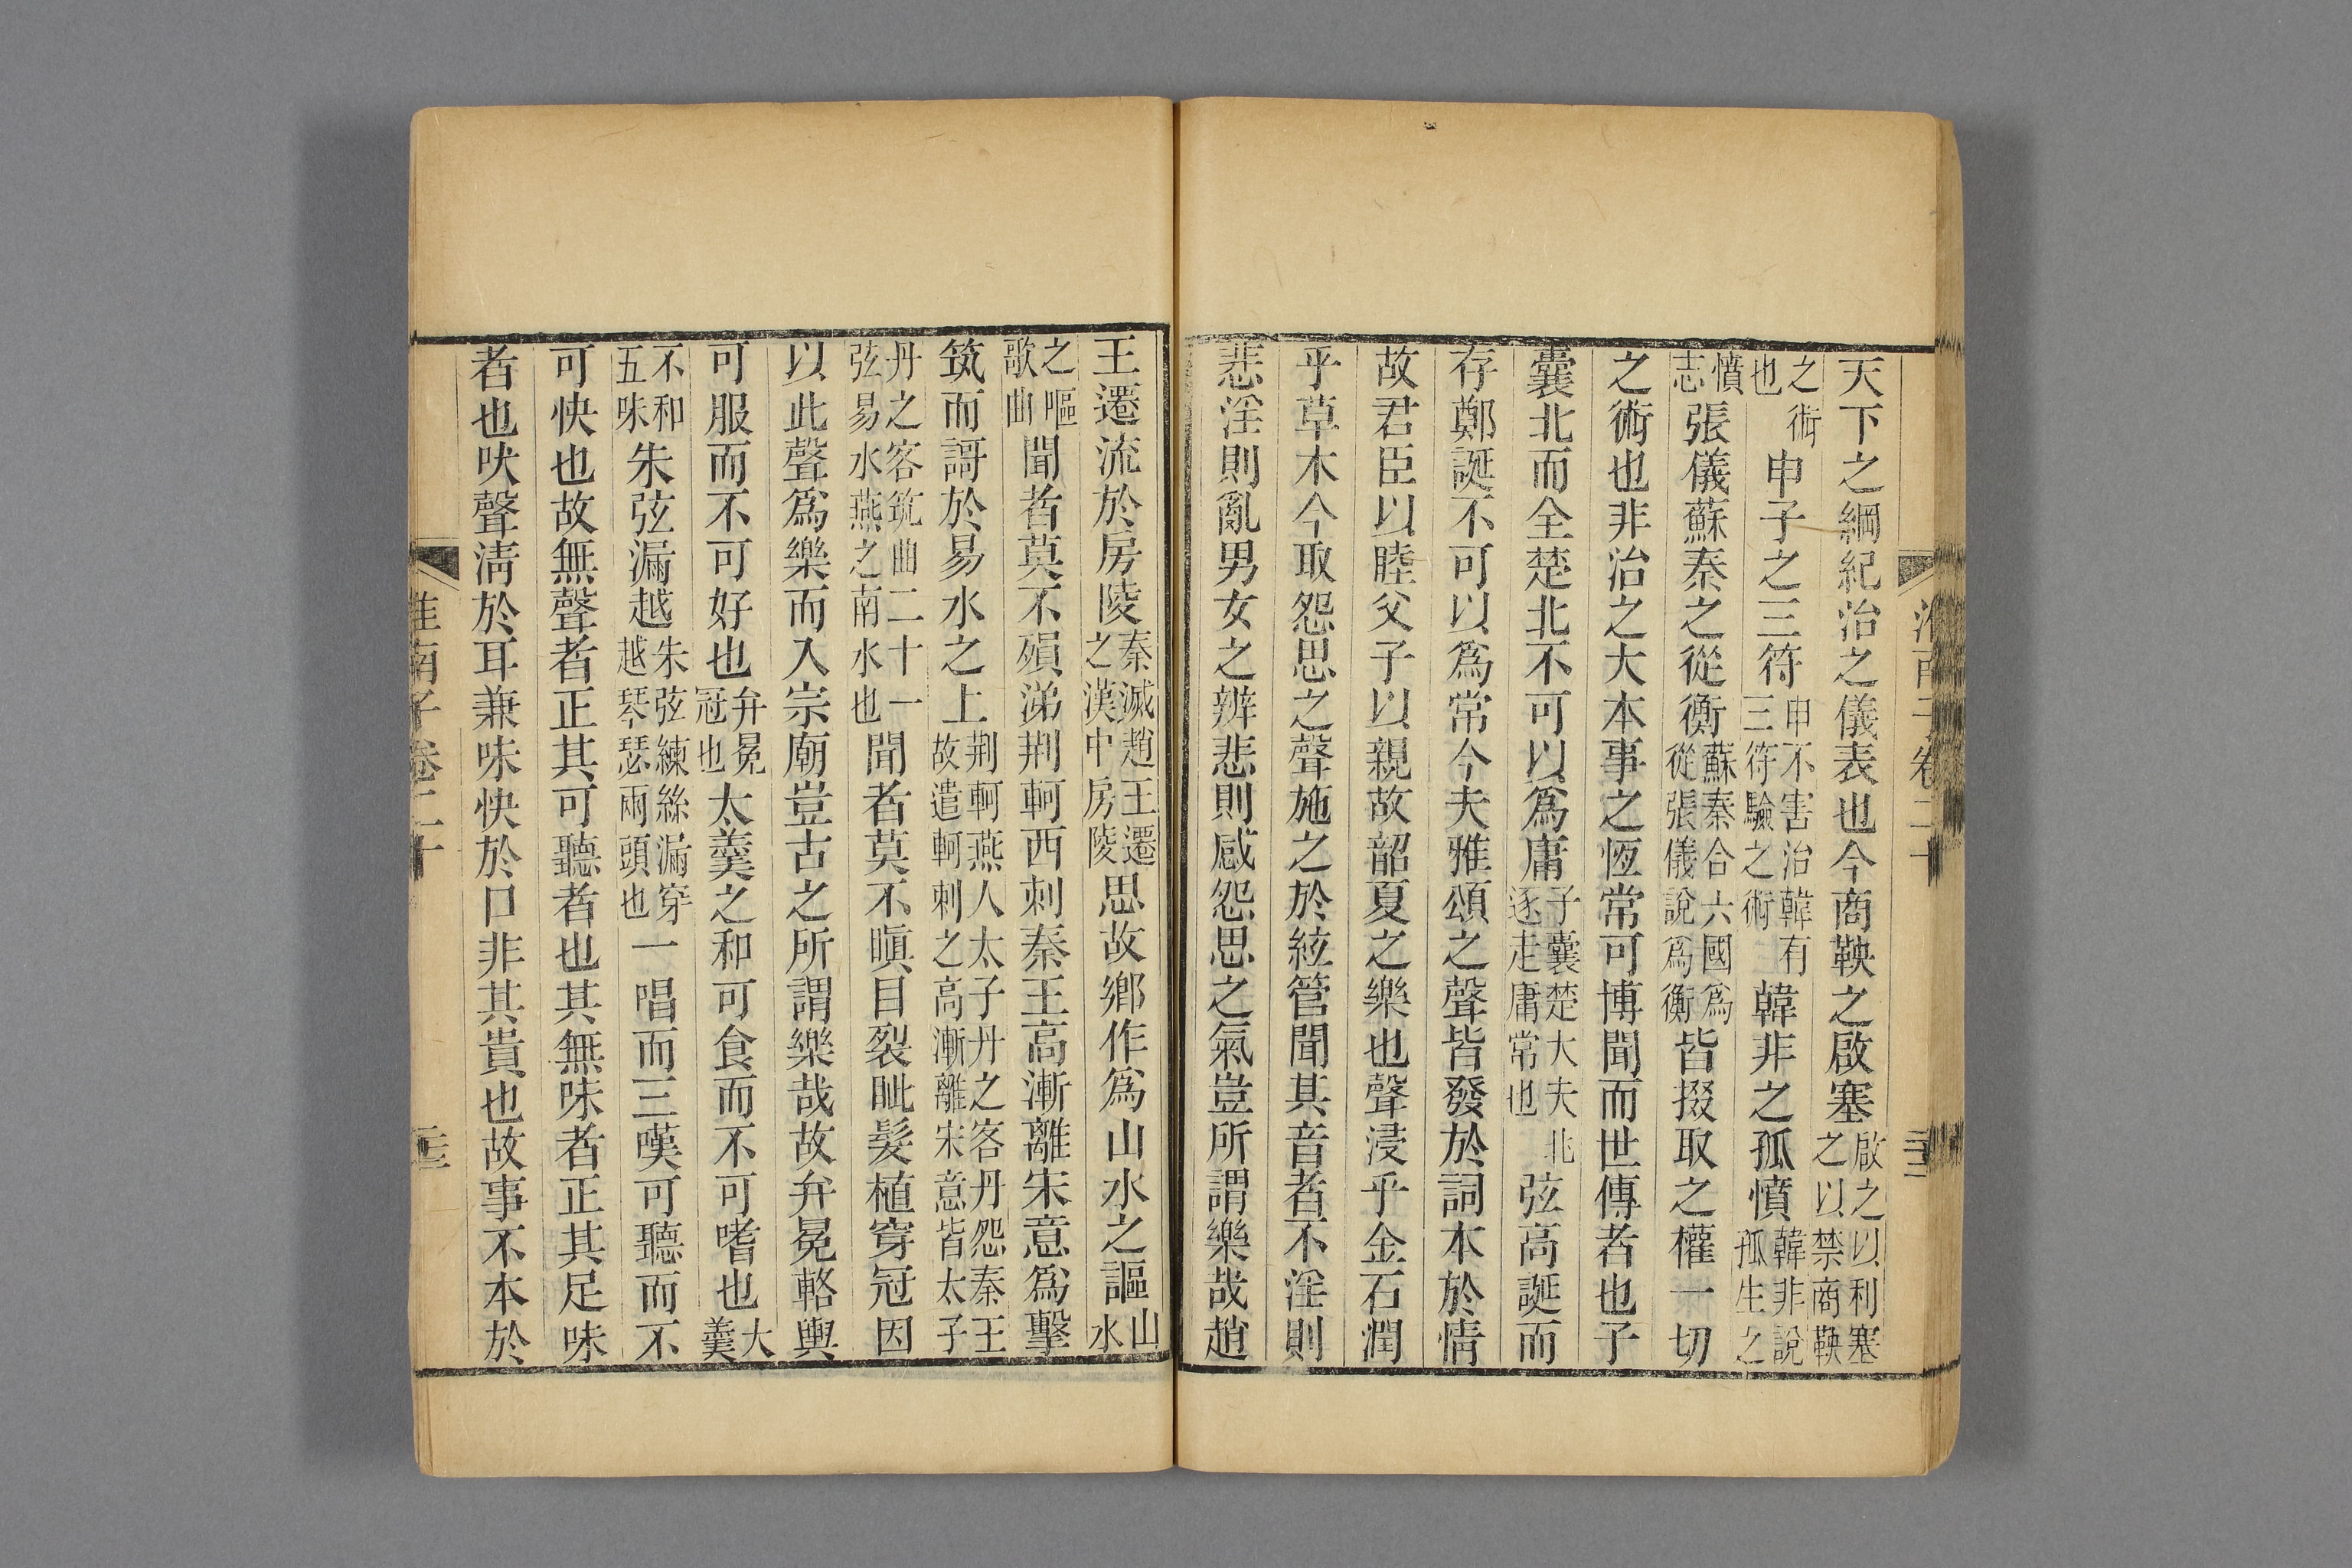 天下之綱紀治之儀表也今商鞅之啟塞啟之以利塞之以禁商鞅
之術也申子之三符申不害治韓有三符驗之術韓非之孤憤韓非說孤生之
憤志張儀蘇秦之從衡蘇秦合六國爲從張儀說爲衡皆掇取之權一切
之術也非治之大本事之恆常可博聞而世傳者也子
囊北而全楚北不可以爲庸子囊楚大夫北逐走庸常也弦高誕而
存鄭誕不可以爲常今夫雅頌之聲皆發於詞本於情
故君臣以睦父子以親故韶夏之樂也聲浸乎金石潤
乎草木今取怨思之聲施之於絃管聞其音者不淫則
悲淫則亂男女之辨悲則感怨思之氣豈所謂樂哉趙
王遷流於房陵秦滅趙王遷之漢中房陵思故鄉作爲山水之謳山水
之嘔歌曲聞者莫不殞涕荆軻西刺秦王高漸離宋意爲擊
筑而謌於易水之上荆軻燕人太子丹之客丹怨秦王故遣軻刺之高漸離宋意皆太子
丹之客筑曲二十一弦易水燕之南水也聞者莫不瞋目裂眦髮植穿冠因
以此聲爲樂而入宗廟豈古之所謂樂哉故弁冕輅輿
可服而不可好也弁冕冠也太羹之和可食而不可嗜也大羹
不和五味朱弦漏越朱弦練絲漏穿越琴瑟兩頭也一唱而三嘆可聽而不
可快也故無聲者正其可聽者也其無味者正其足味
者也吠聲淸於耳兼味快於口非其貴也故事不本於
淮南子卷二十